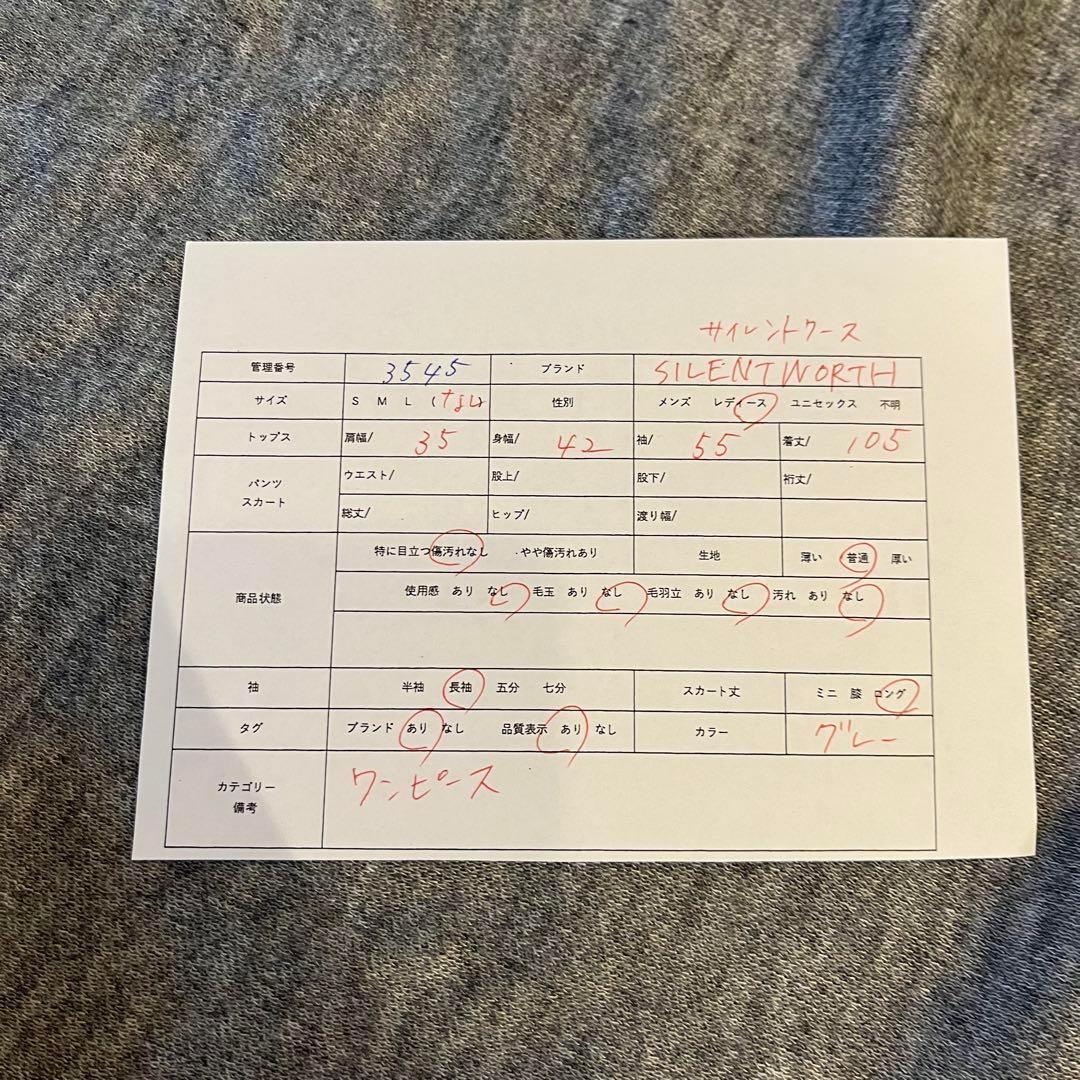 サイレントワース
管理番号 3545 ブランド SILENTWORTH
サイズ S M L (なし) 性別 メンズ レディース ユニセックス 不明
トップス 肩幅/ 35 身幅/ 42 袖/ 55 着丈/ 105
パンツ スカート ウエスト/ 股上/ 股下/ 裄丈/
総丈/ ヒップ/ 渡り幅/
商品状態 特に目立つ傷汚れなし ・やや傷汚れあり 生地 薄い 普通 厚い
使用感 あり なし 毛玉 あり なし 毛羽立 あり なし 汚れ あり なし
袖 半袖 長袖 五分 七分 スカート丈 ミニ 膝 ロング
タグ ブランド あり なし 品質表示 あり なし カラー グレー
カテゴリー 備考 ワンピース